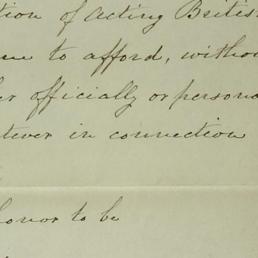 tion of Acting Britis
me to afford, witho
er officially or persona
tever in connection
honor to be